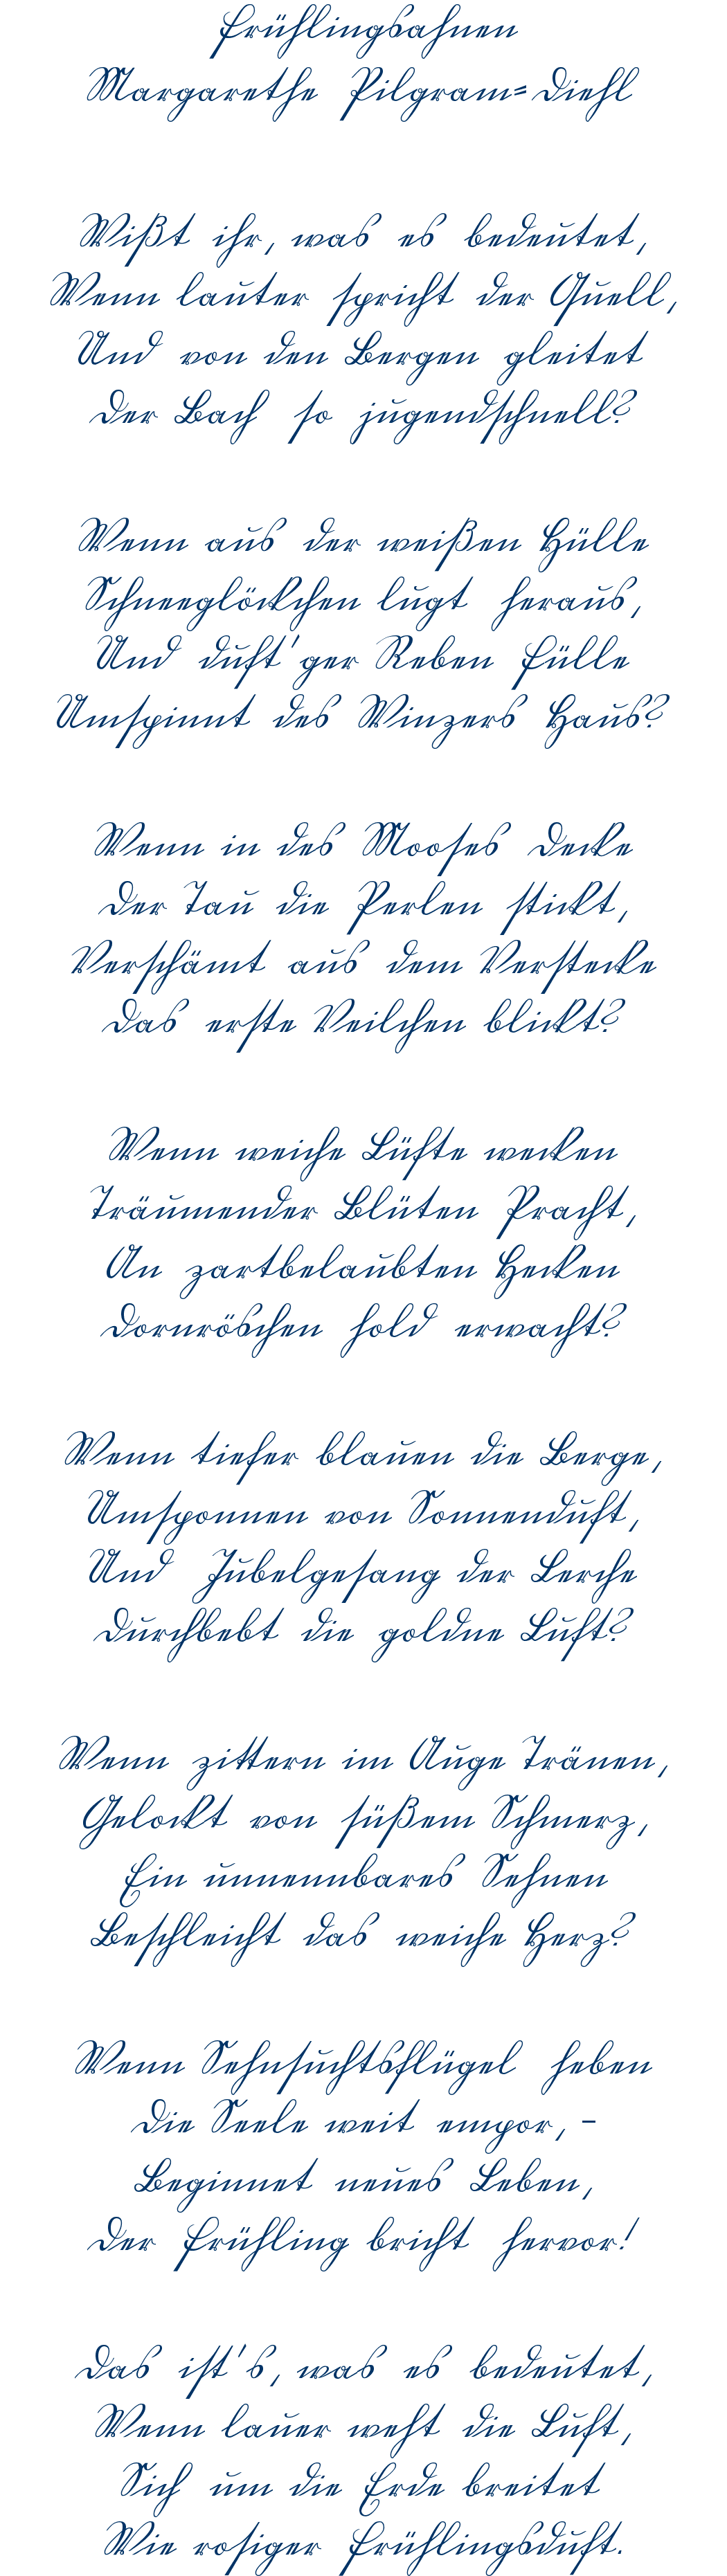 Frühlingsahnen
Margarethe Pilgram-Diehl
Wißt ihr, was es bedeutet,
Wenn lauter spricht der Quell,
Und von den Bergen gleitet
Der Bach so jugendschnell?
Wenn aus der weißen Hülle
Schneeglöckchen lugt heraus,
Und duft'ger Reben Fülle
Umspinnt des Winzers Haus?
Wenn in des Mooses Decke
Der Tau die Perlen stickt,
Verschämt aus dem Verstecke
Das erste Veilchen blickt?
Wenn weiche Lüfte wecken
Träumender Blüten Pracht,
An zartbelaubten Hecken
Dornröschen hold erwacht?
Wenn tiefer blauen die Berge,
Umsponnen von Sonnenduft,
Und Jubelgesang der Lerche
Durchbebt die goldne Luft?
Wenn zittern im Auge Tränen,
Gelockt von süßem Schmerz,
Ein unnennbares Sehnen
Beschleicht das weiche Herz?
Wenn Sehnsuchtsflügel heben
Die Seele weit empor, –
Beginnet neues Leben,
Der Frühling bricht hervor!
Das ist's, was es bedeutet,
Wenn lauer weht die Luft,
Sich um die Erde breitet
Wie rosiger Frühlingsduft.